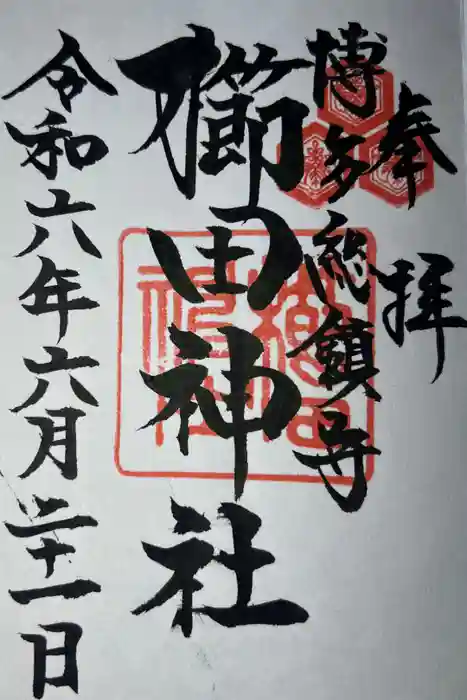 奉拝
博多総鎮守
櫛田神社
令和六年六月二十一日